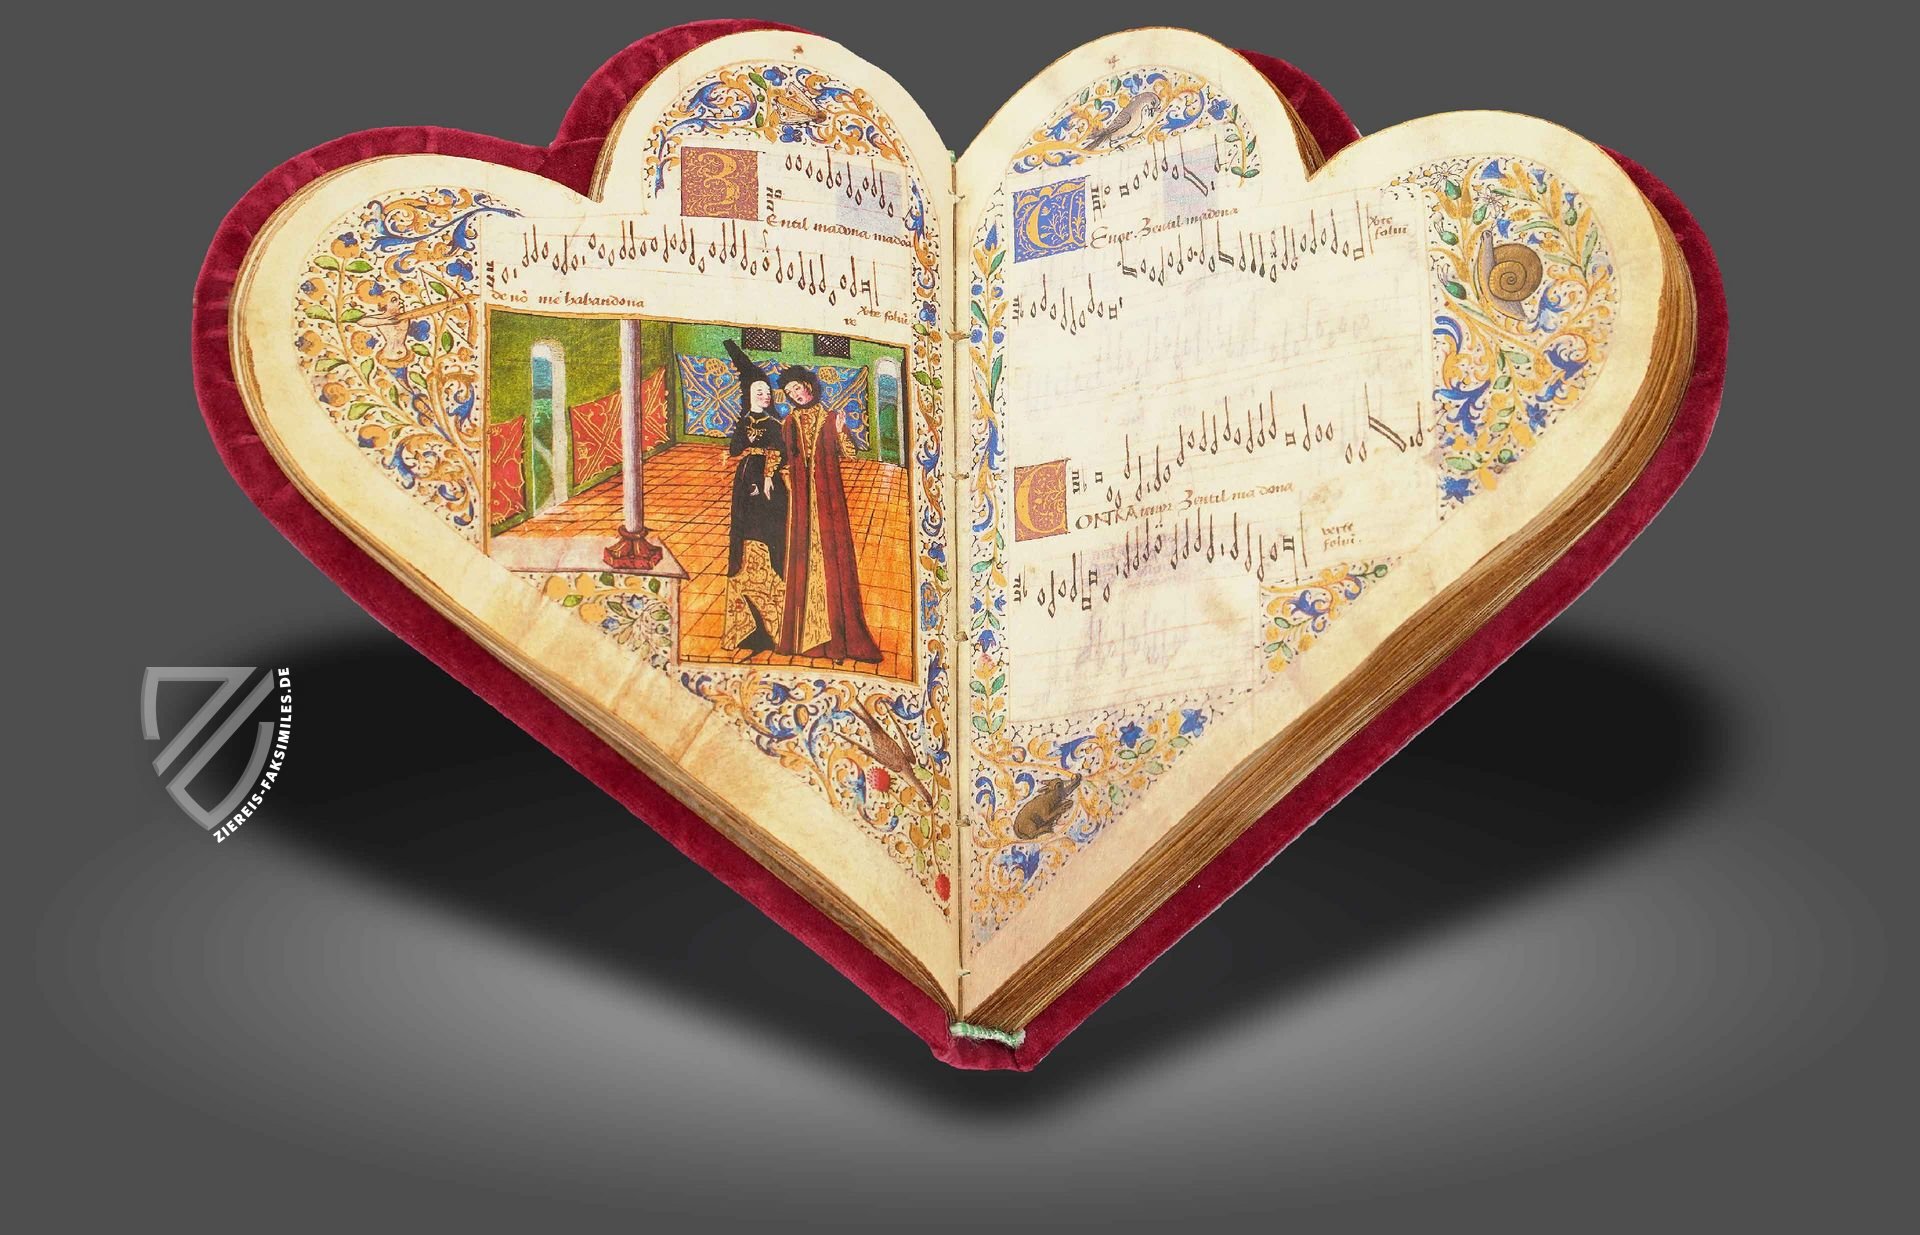 Zentil madona mado
de nō me habandona
vte foliū
Tenor. Zentil madona
vte
foliū
CONTRAtenor Zentil madona
verte
foliū.
ZIEREIS-FAKSIMILES.DE